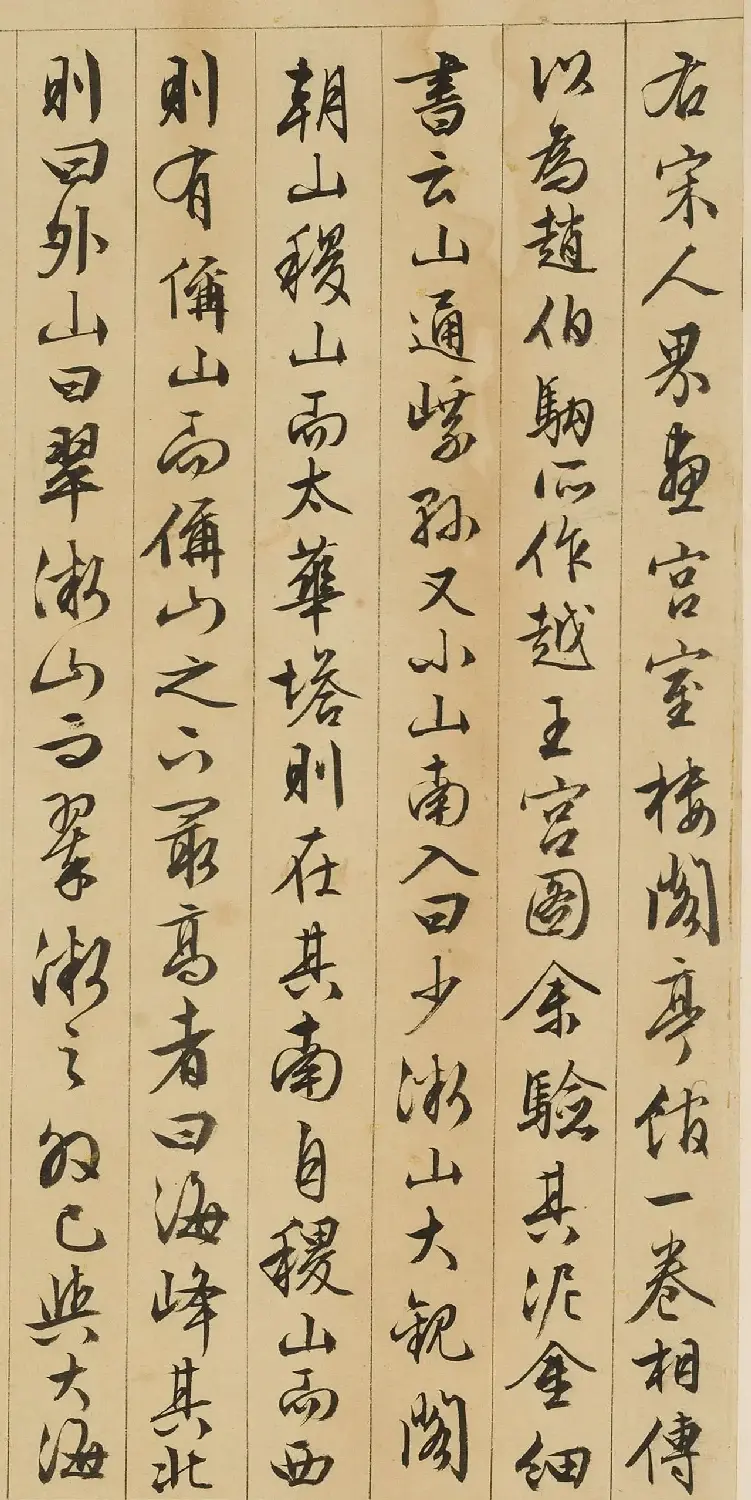 右宋人界畫宮室樓閣亭館一卷相傳
以為趙伯駒所作越王宮圖余驗其泥金細
書云山通嵊縣又小山南入曰少微山大觀閣
朝山稷山而太華塔則在其南自稷山而西
則有偁山而偁山之下最高者曰海峰其北
則曰外山曰翠微山而翠微之外已與大海